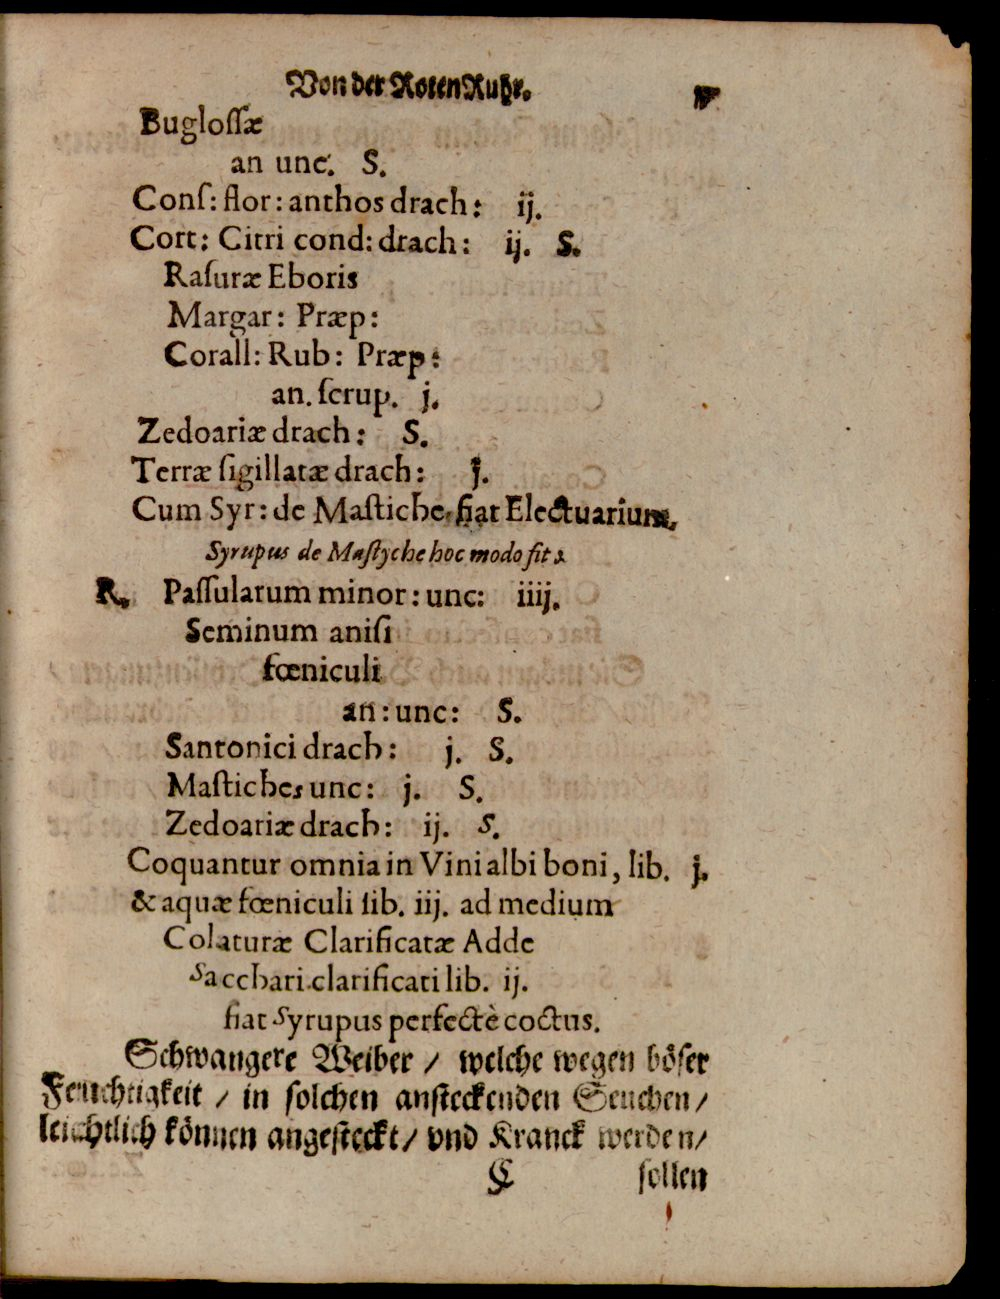 Von der Roten Ruhr.
Bugloſſæ
an unc. S.
Conſ: flor: anthos drach: ij.
Cort: Citri cond: drach: ij. S.
Raſuræ Eboris
Margar: Præp:
Corall: Rub: Præp:
an. ſcrup. j.
Zedoariæ drach: S.
Terræ ſigillatæ drach: j.
Cum Syr: de Maſtiche fiat Electuarium.
Syrupus de Maſtyche hoc modo fit :
R. Paſſularum minor: unc: iiij.
Seminum aniſi
fœniculi
an: unc: S.
Santonici drach: j. S.
Maſtiches unc: j. S.
Zedoariæ drach: ij. S.
Coquantur omnia in Vini albi boni, lib. j.
& aquæ fœniculi lib. iij. ad medium
Colaturæ Clarificatæ Adde
Sacchari clarificati lib. ij.
fiat Syrupus perfectè coctus.
Schwangere Weiber / welche wegen böſer
Feuchtigkeit / in ſolchen anſteckenden Seuchen /
leichtlich können angeſteckt / vnd Kranck werden /
C ſollen